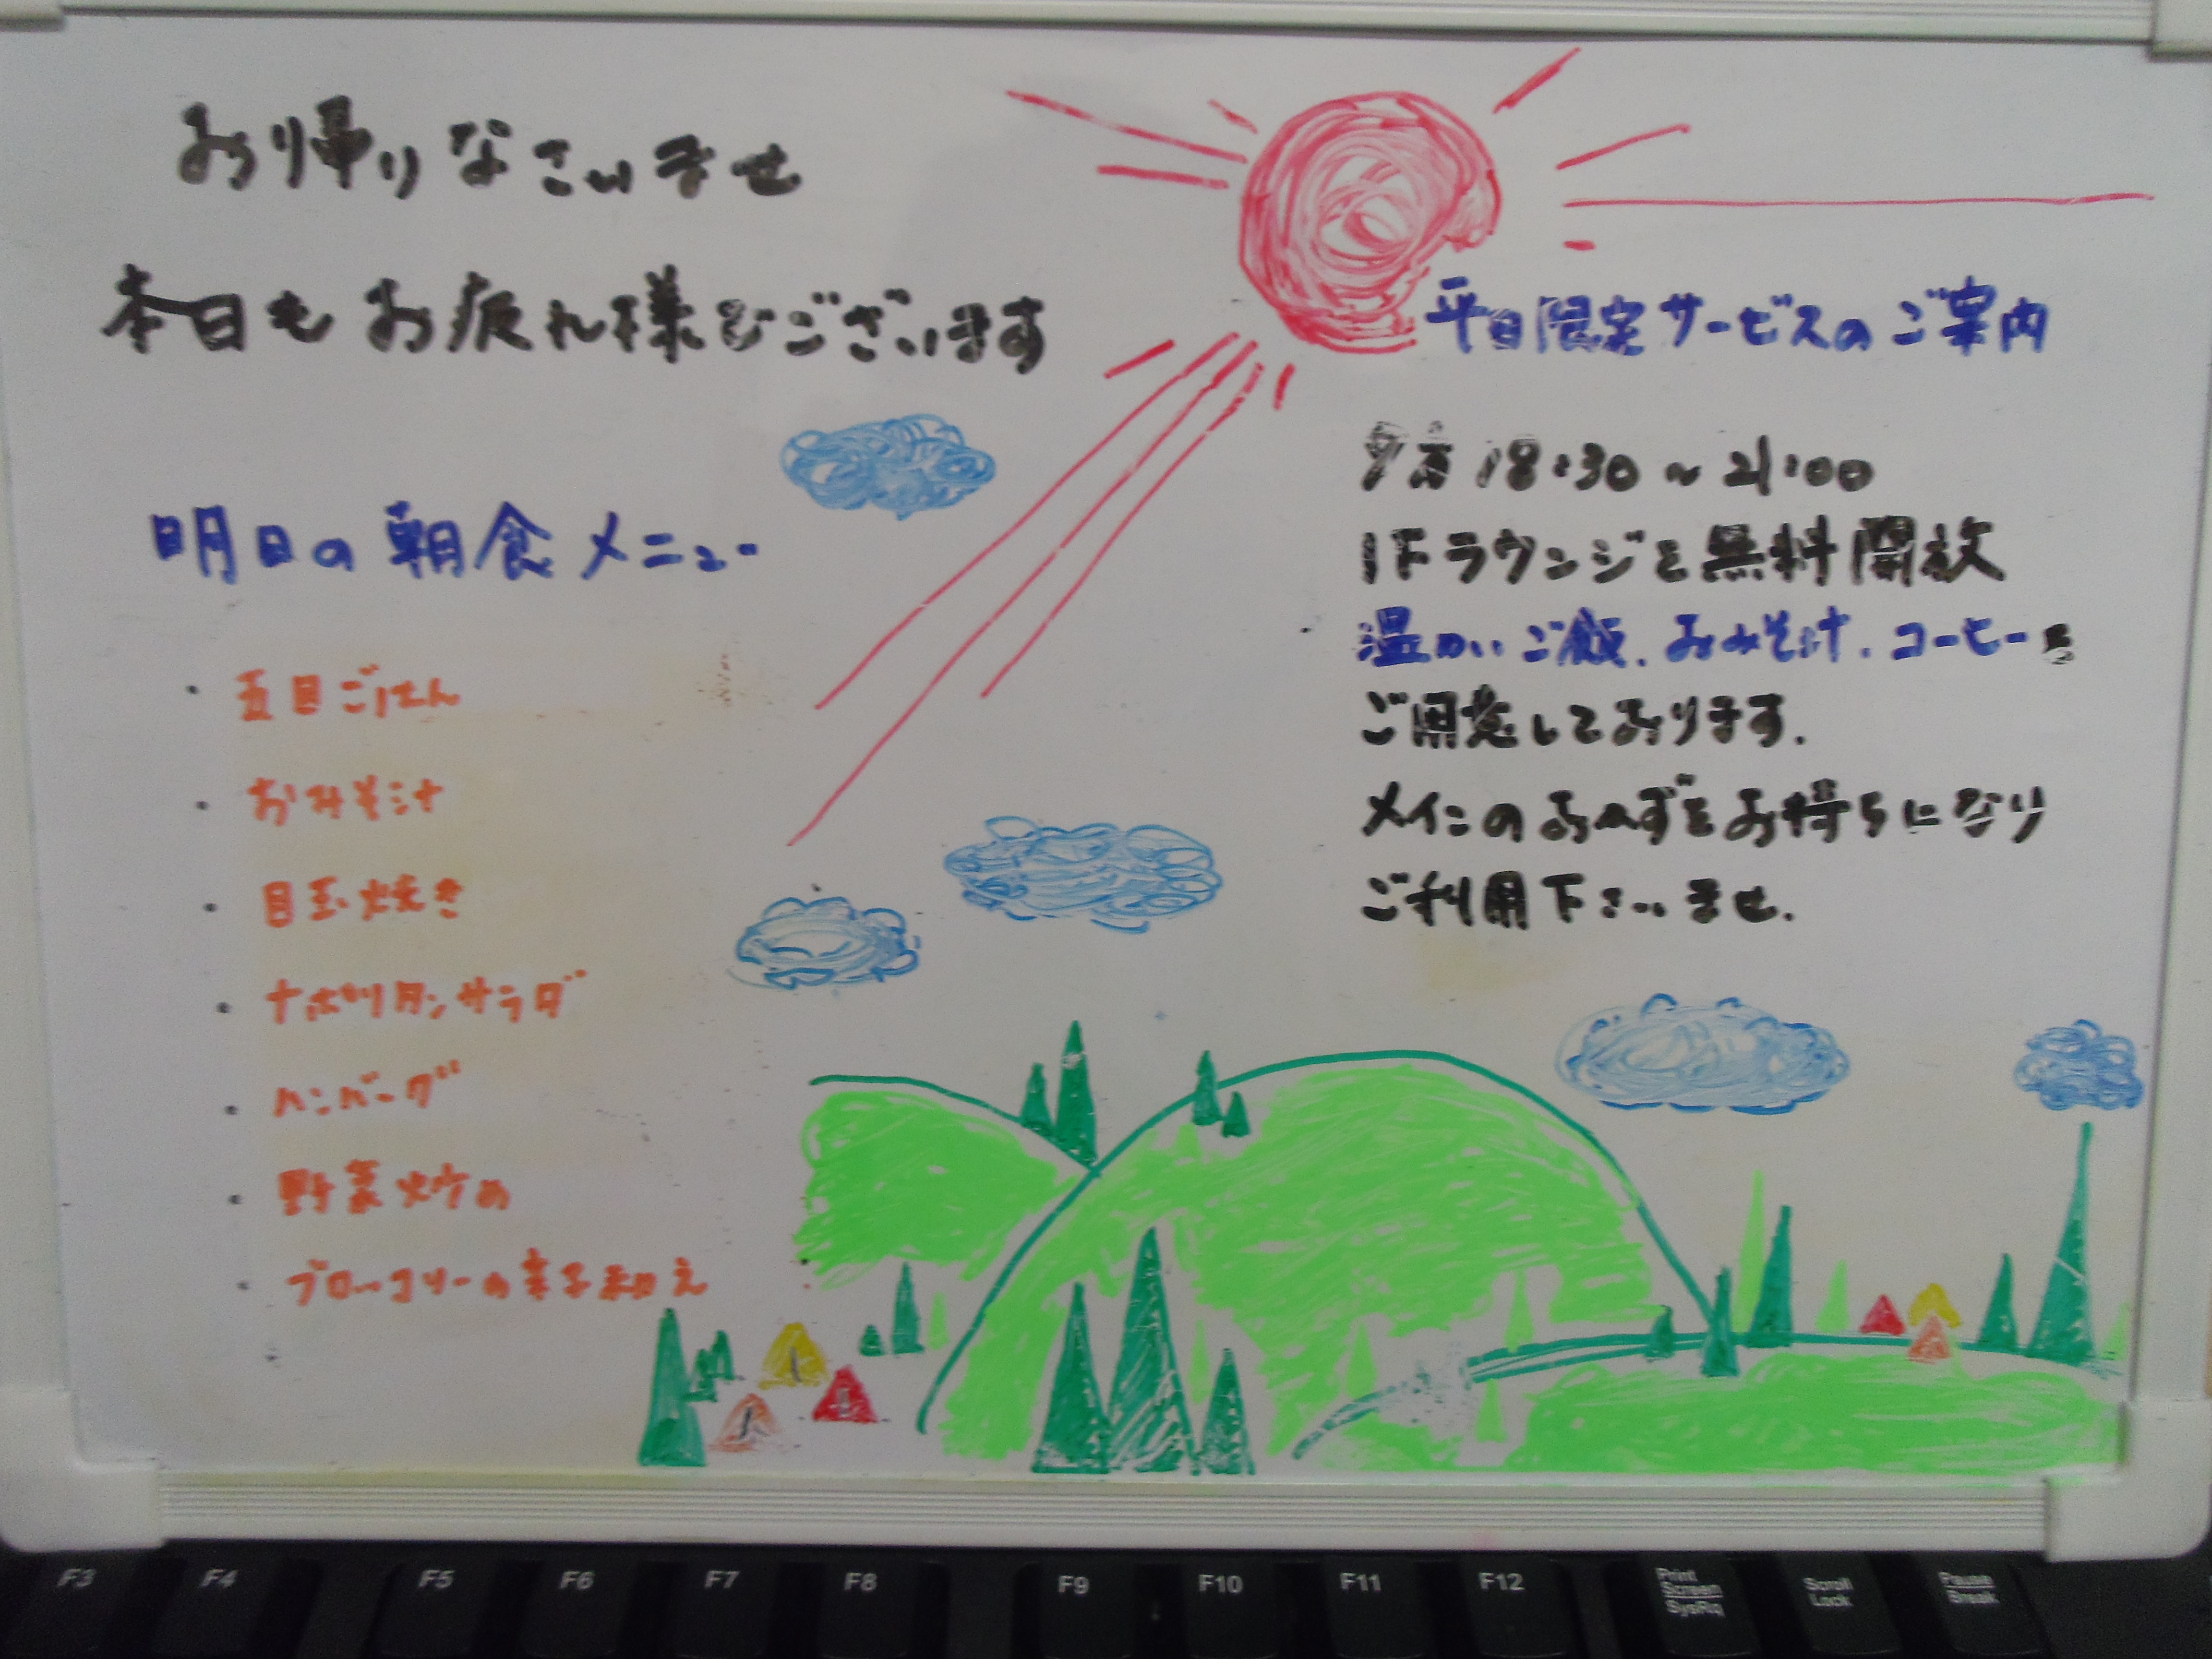 お帰りなさいませ
本日もお疲れ様でございます
明日の朝食メニュー
・五目ごはん
・おみそ汁
・目玉焼き
・ナポリタンサラダ
・ハンバーグ
・野菜炒め
・ブロッコリーの辛子和え
平日限定サービスのご案内
夕方 18:30～21:00
1Fラウンジを無料開放
温かいご飯、おみそ汁、コーヒーを
ご用意しております。
メインのおかずをお持ちになり
ご利用下さいませ。
F3 F4 F5 F6 F7 F8 F9 F10 F11 F12
Print
Screen
SysRq
Scroll
Lock
Pause
Break